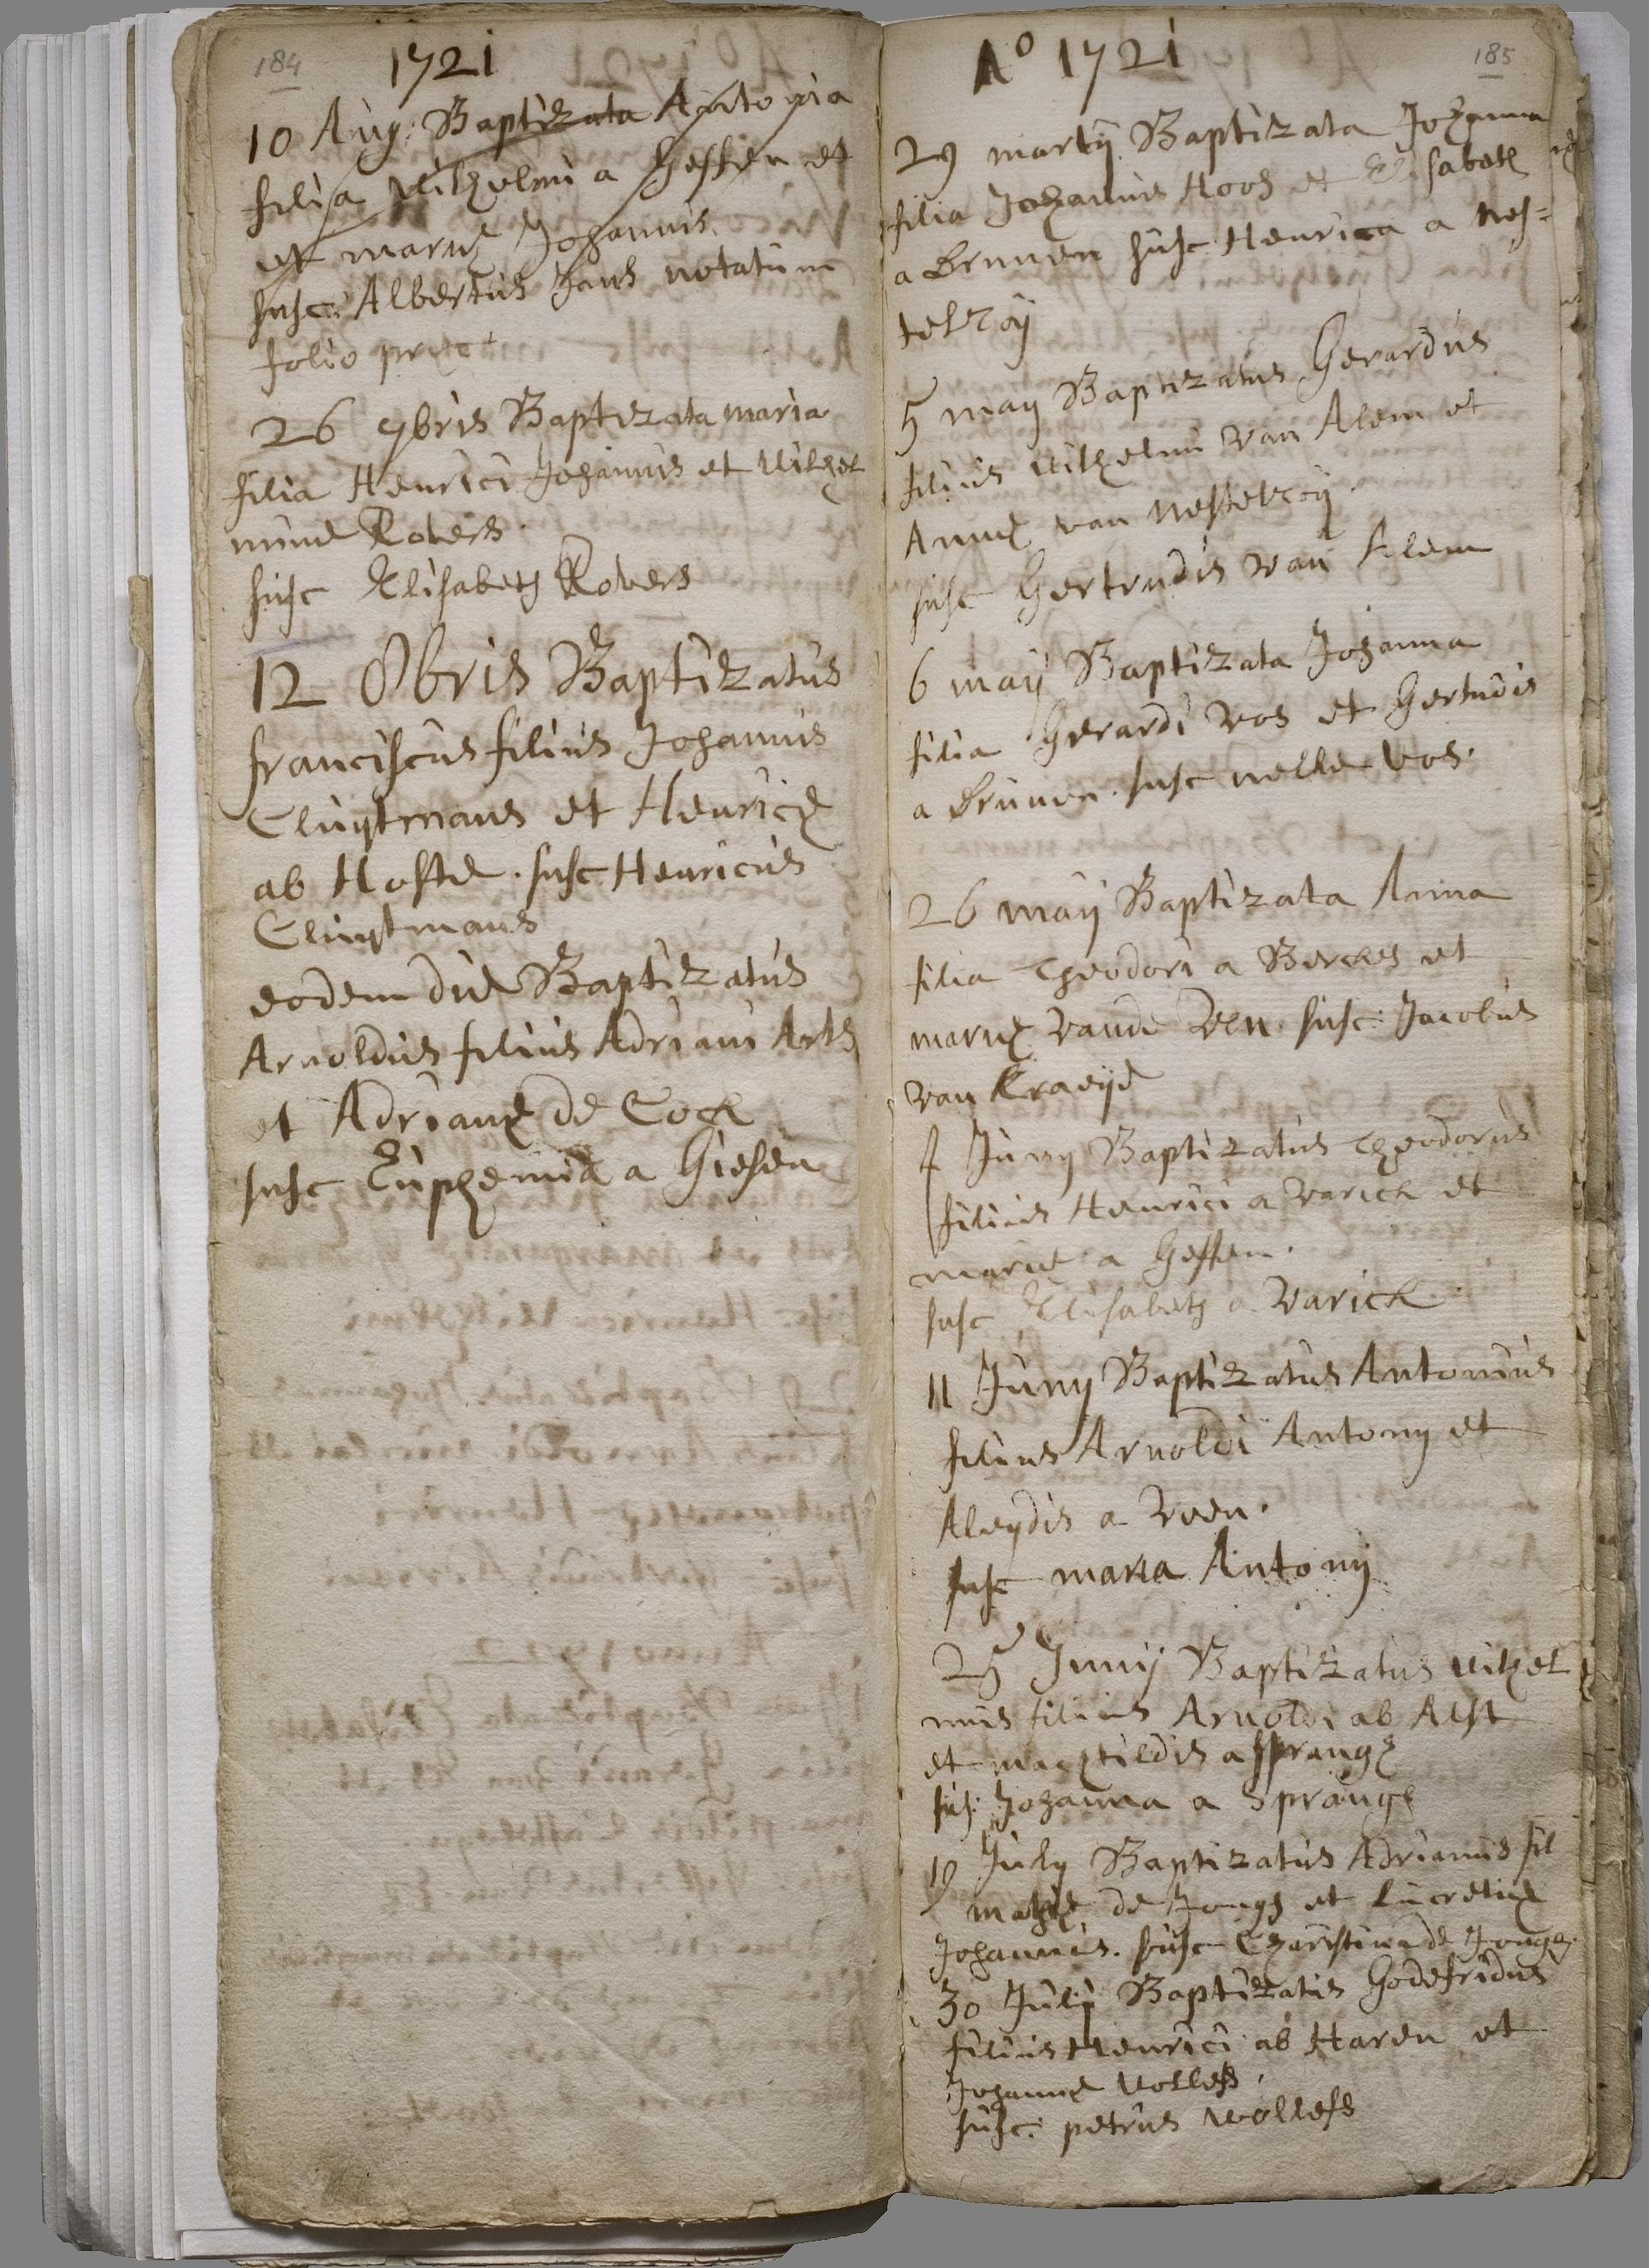 184
1721
10 Aug: Baptizata Antonia
filia Wilhelmi a Geffen et
et mariæ Johannis.
susc: Albertus Jans notatum
folio præct
26 9bris Baptizata maria
filia Henrici Johannis et Wilhel
minæ Rovers.
susc Elisabeth Rovers
12 Obris Baptizatus
franciscus filius Johannis
Cluytmans et Henricæ
ab Hostel. susc Henricus
Cluytmans
eodem die Baptizatus
Arnoldus filius Adriani Arts
et Adrianæ de Cock
susc Euphemia a Giesen
185
Ao 1721
29 martij Baptizata Johanna
filia Johannis Roos et Elisabeth
a Drunen susc Henrica a nes=
telroij
5 maij Baptizatus Gerardus
filius Wilhelmi van Alem et
Annæ van nestelroij.
susc Gertrudis van Alem
6 maij Baptizata Johanna
filia Gerardi vos et Gertrudis
a Drunen. susc nelle vos.
26 maij Baptizata Anna
filia Theodori a Berckel et
mariæ vande ven. susc: Jacobus
van Kraeije
4 Junij Baptizatus Theodorus
filius Henrici a varick et
mariæ a Geffen.
susc Elisabeth a varick
11 Junij Baptizatus Antonius
filius Arnoldi Antonij et
Aleydis a veen.
susc maria Antonij
25 Junij Baptizatus Wilhel
mus filius Arnoldi ab Alst
et machtildis a sprangh
sus: Johanna a sprangh
19 July Baptizatus Adrianus fil
mathiæ de Jongh et Lucretiæ
Johannis. susc Christina de Jongh.
30 Julij Baptizatus Godefridus
filius Henrici ab Haren et
Johannæ Wollefs.
susc: petrus wollefs